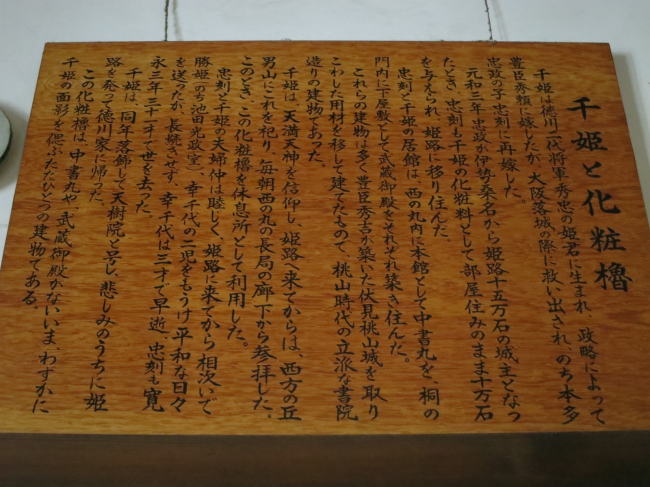 千姫と化粧櫓
千姫は徳川二代将軍秀忠の姫君に生まれ、政略によって
豊臣秀頼に嫁したが、大阪落城の際に救い出され、のち本多
忠政の子忠刻に再嫁した。
元和三年忠政が伊勢桑名から姫路十五万石の城主となっ
たとき、忠刻も千姫の化粧料として部屋住みのまま十万石
を与えられ、姫路に移り住んだ。
忠刻と千姫の居館は、西の丸内に本館として中書丸を、桐の
門内に下屋敷として武蔵御殿をそれぞれ築き住んだ。
これらの建物は多く豊臣秀吉が築いた伏見桃山城を取り
こわした用材を移して建てたもので、桃山時代の立派な書院
造りの建物であった。
千姫は、天満天神を信仰し、姫路へ来てからは、西方の丘
男山にこれを祀り、毎朝西の丸の長局の廊下から参拝した。
このとき、この化粧櫓を休息所として利用した。
忠刻と千姫の夫婦仲は睦じく、姫路に来てから相次いで
勝姫(のち池田光政室)、幸千代の二児をもうけ平和な日々
を送ったが、長続きせず、幸千代は三才で早逝、忠刻も寛
永三年三十一才で世を去った。
千姫は、同年落飾して天樹院と号し、悲しみのうちに姫
路を発って徳川家に帰った。
この化粧櫓は、中書丸や武蔵御殿がないいま、わずかに
千姫の面影を偲ぶただひとつの建物である。